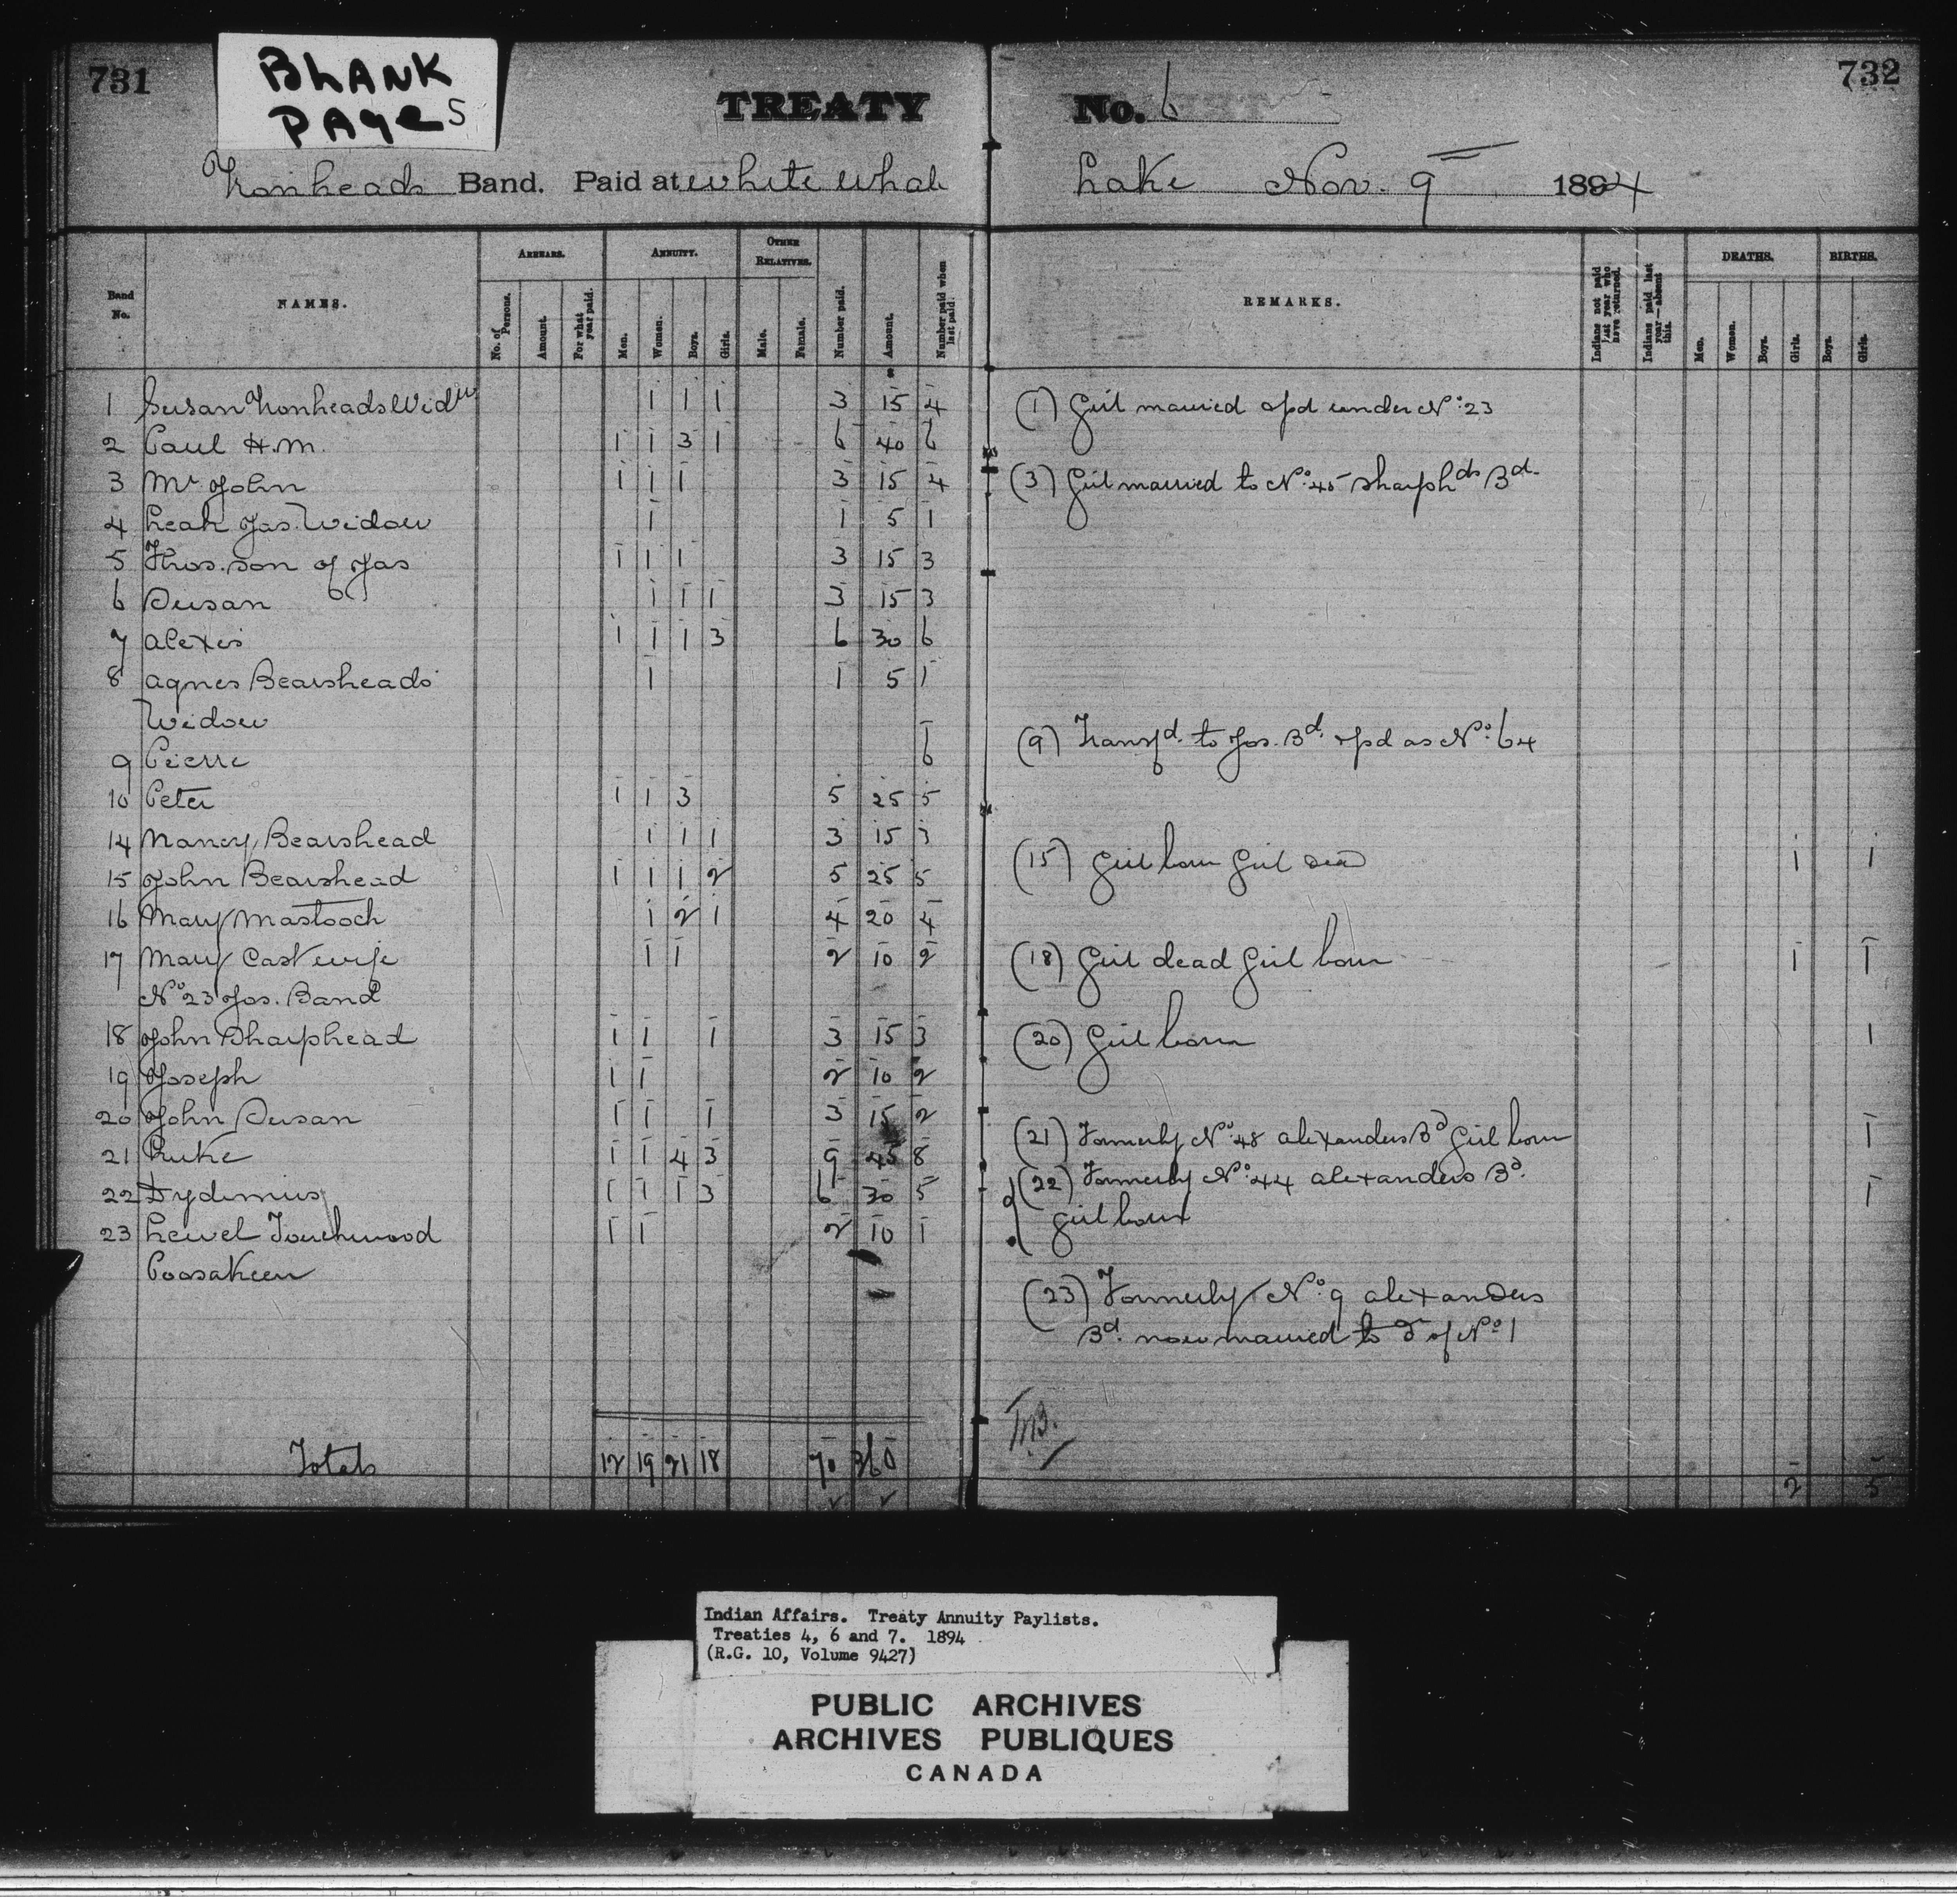 731
BLANK
PAgeS
TREATY
No. 6
732
Ironheads Band. Paid at white whale
Lake Nov. 9 1894
Band No.
NAMES.
ARREARS.
No. of Persons.
Amount.
For what year paid.
ANNUITY.
Men.
Women.
Boys.
Girls.
OTHER RELATIVES.
Male.
Female.
Number paid.
Amount.
Number paid when last paid.
REMARKS.
Indians not paid last year who have returned.
Indians paid last year—absent this.
DEATHS.
Men.
Women.
Boys.
Girls.
BIRTHS.
Boys.
Girls.
1 Susan Ironheads Widw 1 1 1 3 15 4
2 Paul H.M. 1 1 3 1 6 40 6
3 Mr John 1 1 1 3 15 4
4 Leah Jas. Widow 1 1 5 1
5 Thos. son of Jas 1 1 1 3 15 3
6 Susan 1 1 1 3 15 3
7 Alexis 1 1 1 3 6 30 6
8 Agnes Bearsheads 1 1 5 1
Widow
9 Pierre 6
10 Peter 1 1 3 5 25 5
14 Nancy Bearshead 1 1 1 3 15 3
15 John Bearshead 1 1 1 2 5 25 5
16 Mary Mastooch 1 2 1 4 20 4
17 Mary Cast wife 1 1 2 10 2
No 23 Jos. Band
18 John Sharphead 1 1 1 3 15 3
19 Joseph 1 1 2 10 2
20 John Susan 1 1 1 3 15 2
21 Luke 1 1 4 3 9 45 8
22 Dydimus 1 1 1 3 6 30 5
23 Lewel Touchwood 1 1 2 10 1
Poosakeen
Totals 12 19 21 18 70 360
(1) Girl married & pd under No: 23
(3) Girl married to No: 45 Sharphds Bd.
(9) Transfd. to Jos. Bd. & pd as No: 64
(15) Girl born Girl dead 1 1
(18) Girl dead Girl born 1 1
(20) Girl born 1
(21) Formerly No: 48 Alexanders Bd Girl born 1
(22) Formerly No: 44 Alexanders Bd.
girl born 1
(23) Formerly No: 9 Alexanders
Bd. now married to D of No: 1
2 5
Indian Affairs. Treaty Annuity Paylists.
Treaties 4, 6 and 7. 1894
(R.G. 10, Volume 9427)
PUBLIC ARCHIVES
ARCHIVES PUBLIQUES
CANADA